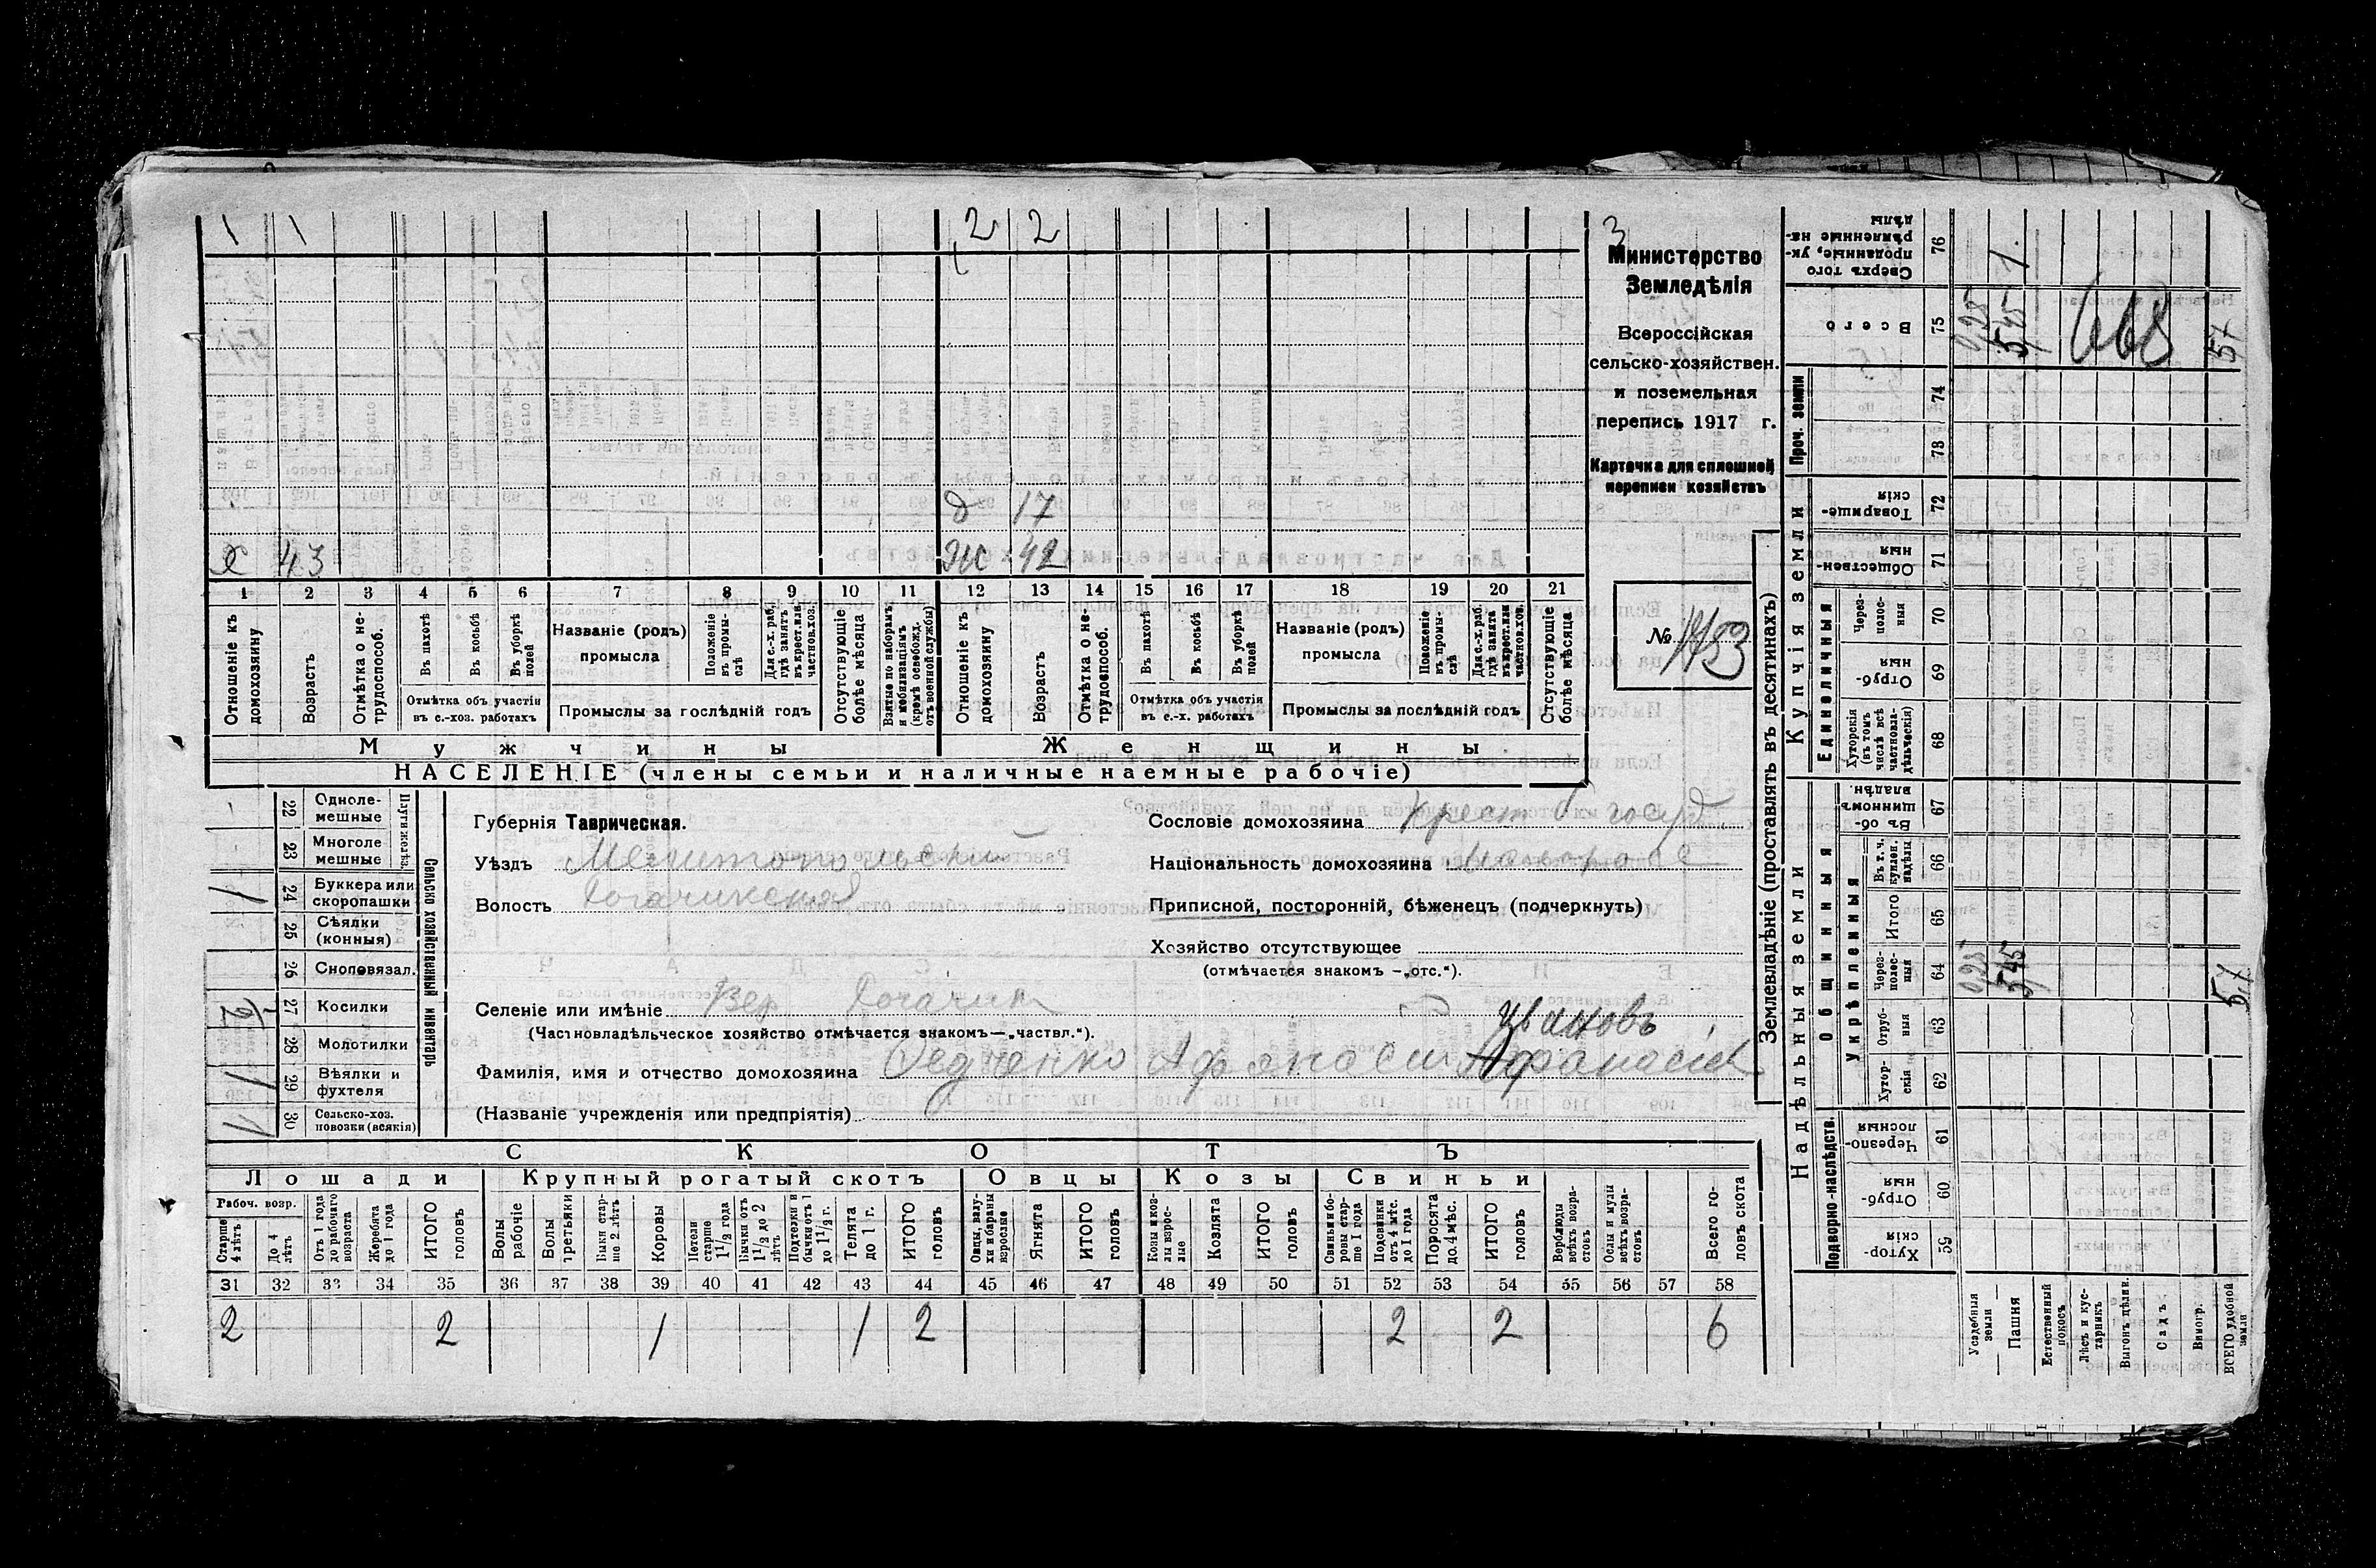 1 1 2 2
д 17
х 43 ж 42
1 2 3 4 5 6 7 8 9 10 11 12 13 14 15 16 17 18 19 20 21
Отношеніе къ домохозяину
Возрастъ
Отмѣтка о нетрудоспособ.
Въ пахотѣ
Въ косьбѣ
Въ уборкѣ полей
Отмѣтка объ участіи въ с.-хоз. работахъ
Названіе (родъ) промысла
Положеніе въ промыслѣ
Для с.-х. раб. гдѣ занятъ въ крест. или частнов. хоз.
Промыслы за послѣдній годъ
Отсутствующіе болѣе мѣсяца
Взятые по наборамъ и мобилизаціямъ (кромѣ освобожд. отъ военной службы)
Отношеніе къ домохозяину
Возрастъ
Отмѣтка о нетрудоспособ.
Въ пахотѣ
Въ косьбѣ
Въ уборкѣ полей
Отмѣтка объ участіи въ с.-х. работахъ
Названіе (родъ) промысла
Положеніе въ промыслѣ
Для с.-х. раб. гдѣ занята въ крест. или частнов. хоз.
Промыслы за послѣдній годъ
Отсутствующіе болѣе мѣсяца
Мужчины Женщины
НАСЕЛЕНІЕ (члены семьи и наличные наемные рабочіе)
3
Министерство
Земледѣлія
Всероссійская
сельско-хозяйствен.
и поземельная
перепись 1917 г.
Карточка для сплошной
переписи хозяйствъ
№
Сельско хозяйственный инвентарь
Плуги желѣз.
22 Одноле-мешные
23 Многоле мешные
1 24 Буккера или скоропашки
25 Сѣялки (конныя)
26 Сноповязал.
1/2 27 Косилки
28 Молотилки
1 29 Вѣялки и фухтеля
1 30 Сельско-хоз. повозки (всякія)
Губернія Таврическая.
Уѣздъ Мелитопольскій
Волость Рогачикская
Сословіе домохозяина Крест б госуд
Національность домохозяина малоросс
Приписной, посторонній, бѣженецъ (подчеркнуть)
Хозяйство отсутствующее
(отмѣчается знакомъ —„отс.“).
Селеніе или имѣніе Вер Рогачик
(Частновладѣльческое хозяйство отмѣчается знакомъ—„частвл.“).
Ивановъ
Фамилія, имя и отчество домохозяина Федченко Афанасій Афанасіев
(Названіе учрежденія или предпріятія)
СКОТЪ
Лошади Крупный рогатый скотъ Овцы Козы Свиньи
Рабоч. возр.
Старше 4 лѣтъ
До 4 лѣтъ
Отъ 1 года до рабочаго возраста
Жеребята до 1 года
ИТОГО головъ
Волы рабочіе
Волы третьяки
Быки старше 2 лѣтъ
Коровы
Нетели старше 1 1/2 года
Бычки отъ 1 1/2 до 2 лѣтъ
Подтелки и бычки отъ 1 до 1 1/2 г.
Телята до 1 г.
ИТОГО головъ
Овцы, валухи и бараны взрослые
Ягнята
ИТОГО головъ
Козы и козлы взрослые
Козлята
ИТОГО головъ
Свиньи и боровы старше 1 года
Подсвинки отъ 4 мѣс. до 1 года
Поросята до 4 мѣс.
ИТОГО головъ
Верблюды всѣхъ возрастовъ
Ослы и мулы всѣхъ возрастовъ
Всего головъ скота
31 32 33 34 35 36 37 38 39 40 41 42 43 44 45 46 47 48 49 50 51 52 53 54 55 56 57 58
2 2 1 1 2 2 2 6
Землевладѣніе (проставлять въ десятинахъ)
Надѣльныя земли
Купчія земли
Проч. земли
Подворно-наслѣдств.
Общинныя
Укрѣпленныя
Единоличныя
76 Сверхъ того проданные, укрѣпленные надѣлы
75 Всего
74
73
72 Товарищескія
71 Общественныя
70 Черезполосныя
69 Отрубныя
68 Хуторскія (въ томъ числѣ всѣ частновладѣльческія)
67 Въ общинномъ владѣн.
66 Въ т. ч. куплен. надѣлы
65 Итого
64 Черезполосныя
63 Отрубныя
62 Хуторскія
61 Черезполосныя
60 Отрубныя
59 Хуторскія
Усадебныя земли
Пашня
Естественный покосъ
Лѣсъ и кустарникъ
Выгонъ цѣлин.
Садъ
Виногр.
ВСЕГО удобной земли
668